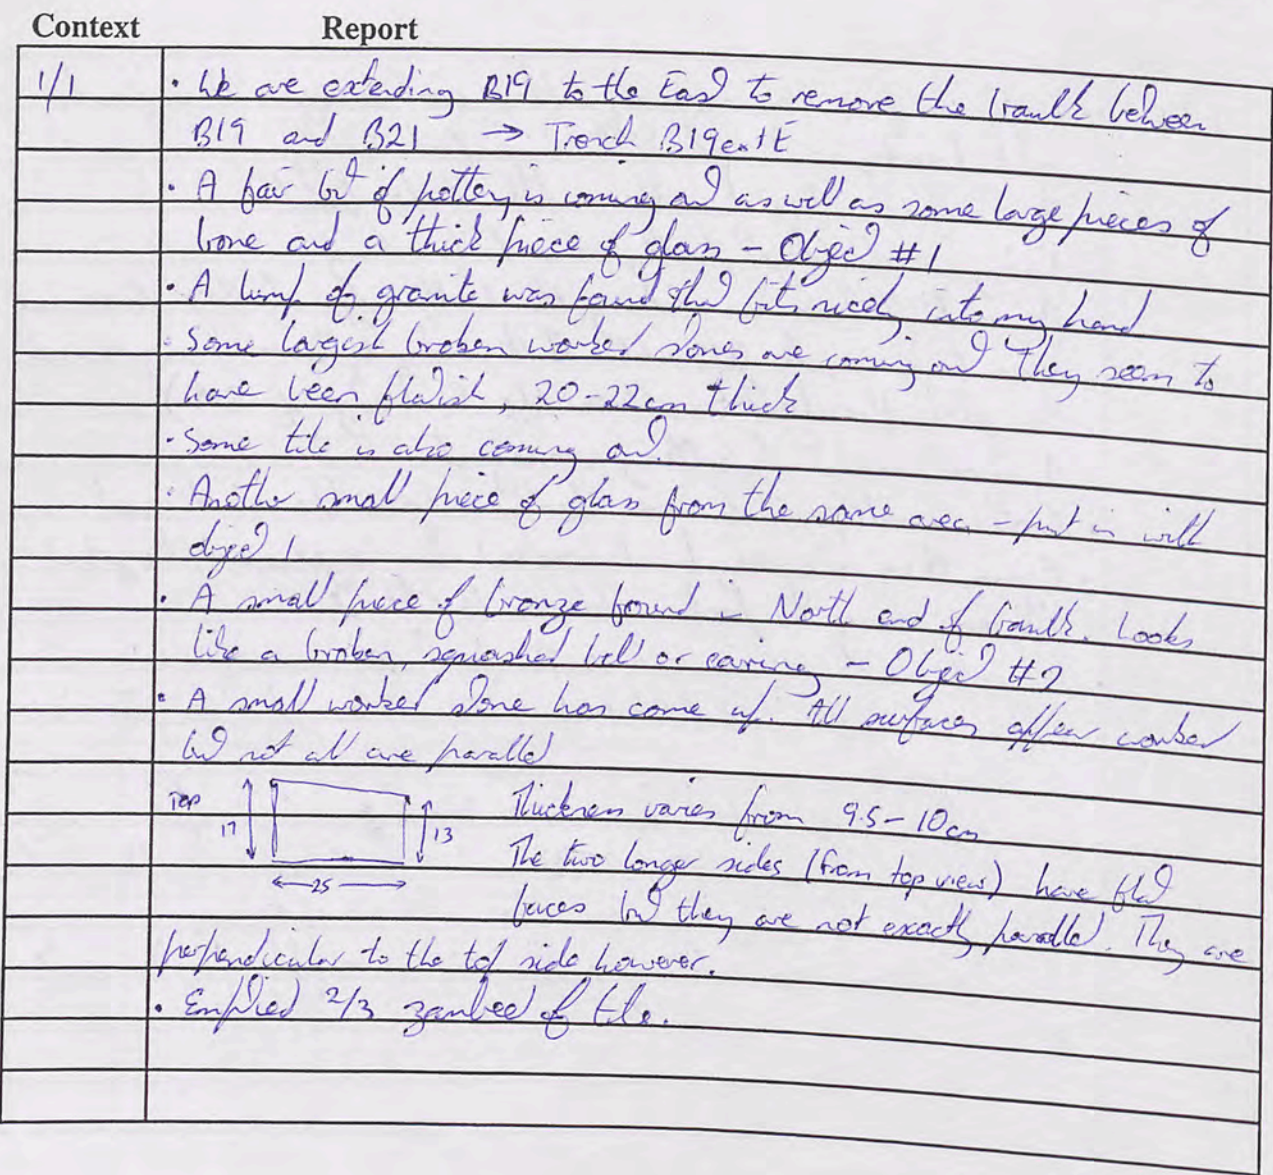 Context Report
1/1 · We are extending B19 to the East to remove the baulk between
B19 and B21 → Trench B19extE
· A fair bit of pottery is coming out as well as some large pieces of
bone and a thick piece of glass - Object #1
· A lump of granite was found that fits nicely into my hand
· Some largish broken worked stones are coming out They seem to
have been flatish, 20-22cm thick
· Some tile is also coming out.
· Another small piece of glass from the same area - put in with
object 1
· A small piece of bronze found in North end of baulk. Looks
like a broken, squashed bell or earing - Object #2
· A small worked stone has come up. All surfaces appear worked
but not all are parallel
TOP 17 13 Thickness varies from 9.5-10cm
25 The two longer sides (from top view) have flat
faces but they are not exactly parallel. They are
perpendicular to the top side however.
· Emptied 2/3 zambeel of tile.